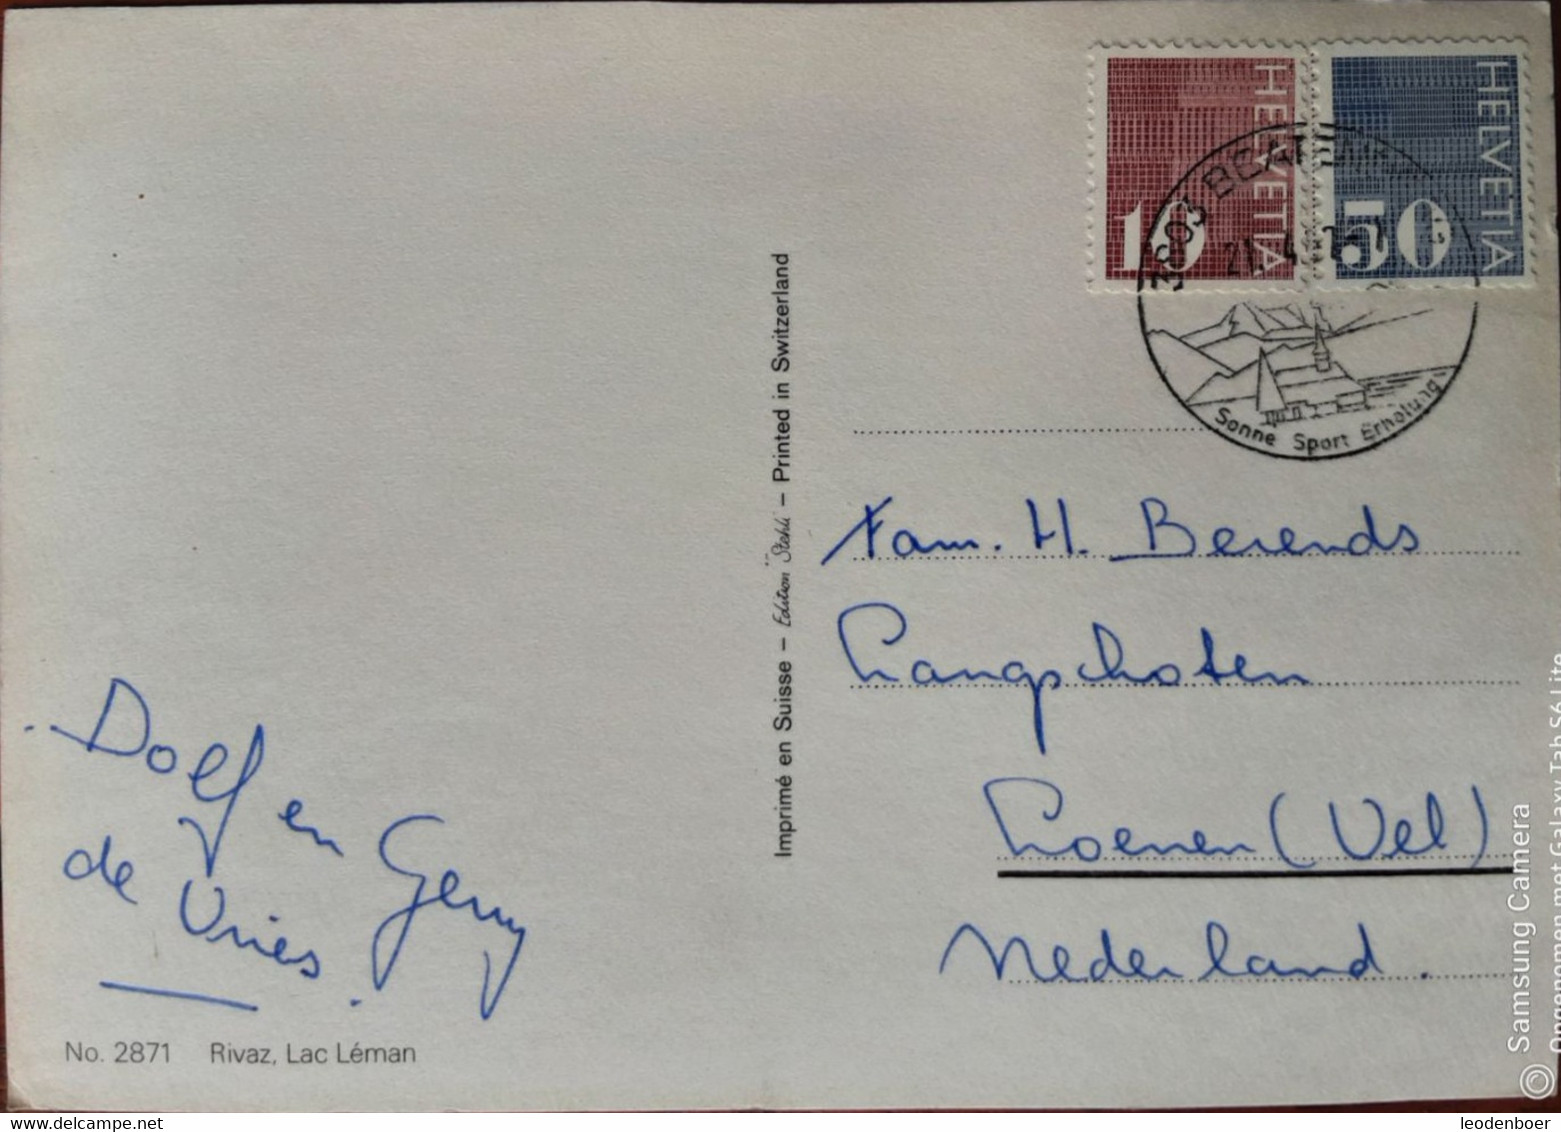 HELVETIA
10
HELVETIA
50
3603 BEATEN
21. 4.
Sonne Sport Erholung
Imprimé en Suisse – Edition Stehli – Printed in Switzerland
Fam. H. Berends
Langschoten
Loenen (Vel)
Nederland.
Dolf en Gerry
de Vries.
No. 2871 Rivaz, Lac Léman
© Samsung Camera
Opgenomen met Galaxy Tab S6 Lite
leodenboer